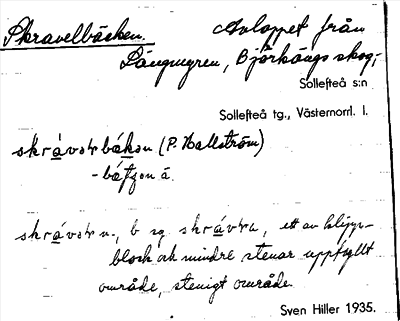 Skravelbäcken. Avloppet från
Långmyren, Björkängs skog,
Sollefteå s:n
Sollefteå tg., Västernorrl. l.
skrávərbäkən (P. Hallström)
-bä́tʃən á
skrávər n., b. sg. skrávrä, ett av klipp-
block och mindre stenar uppfyllt
område, stenigt område.
Sven Hiller 1935.